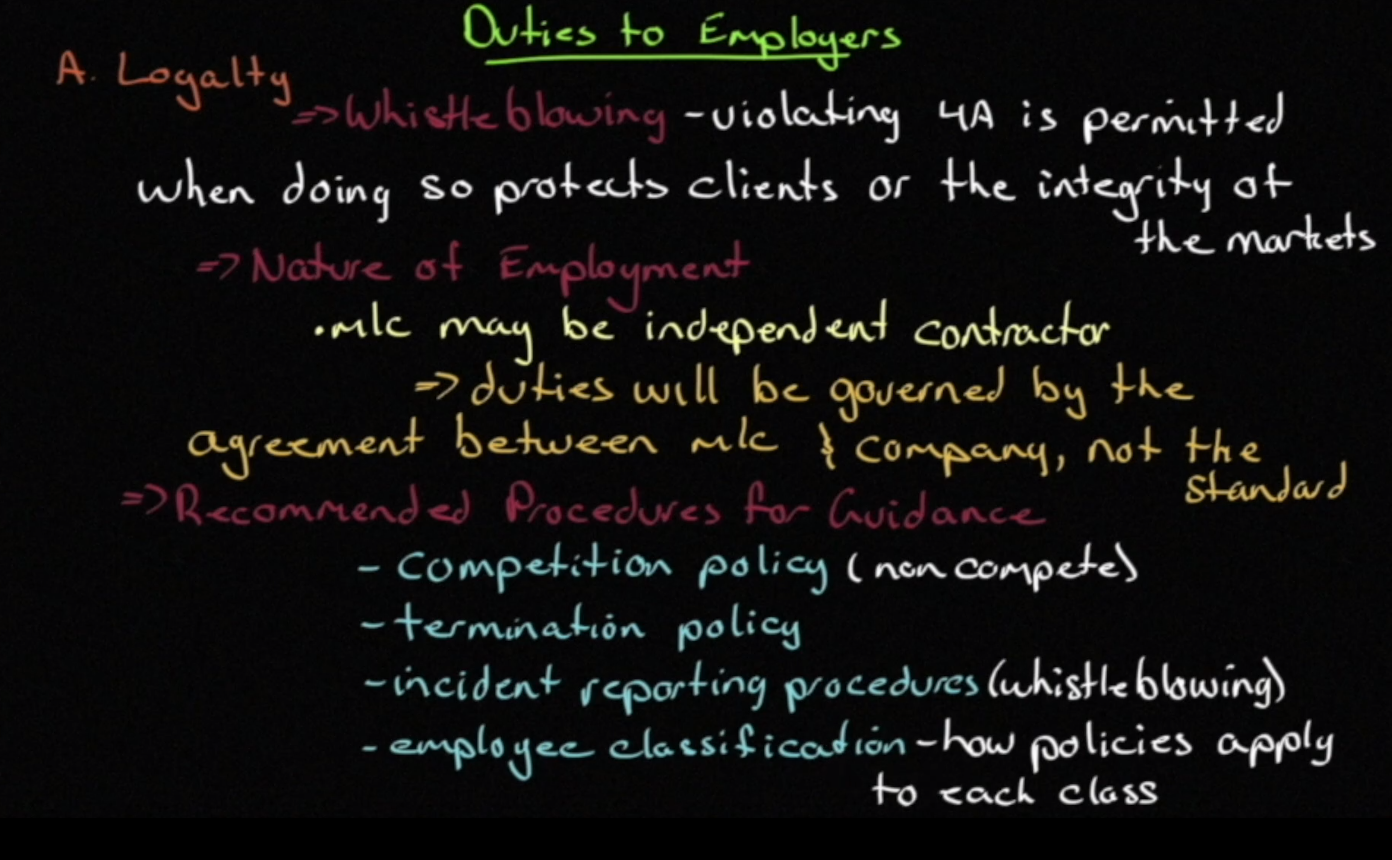 Duties to Employers
A. Loyalty
=> Whistleblowing - violating 4A is permitted
when doing so protects clients or the integrity of
the markets
=> Nature of Employment
• m/c may be independent contractor
=> duties will be governed by the
agreement between m/c & company, not the
standard
=> Recommended Procedures for Guidance
- competition policy (non compete)
- termination policy
- incident reporting procedures (whistleblowing)
- employee classification - how policies apply
to each class